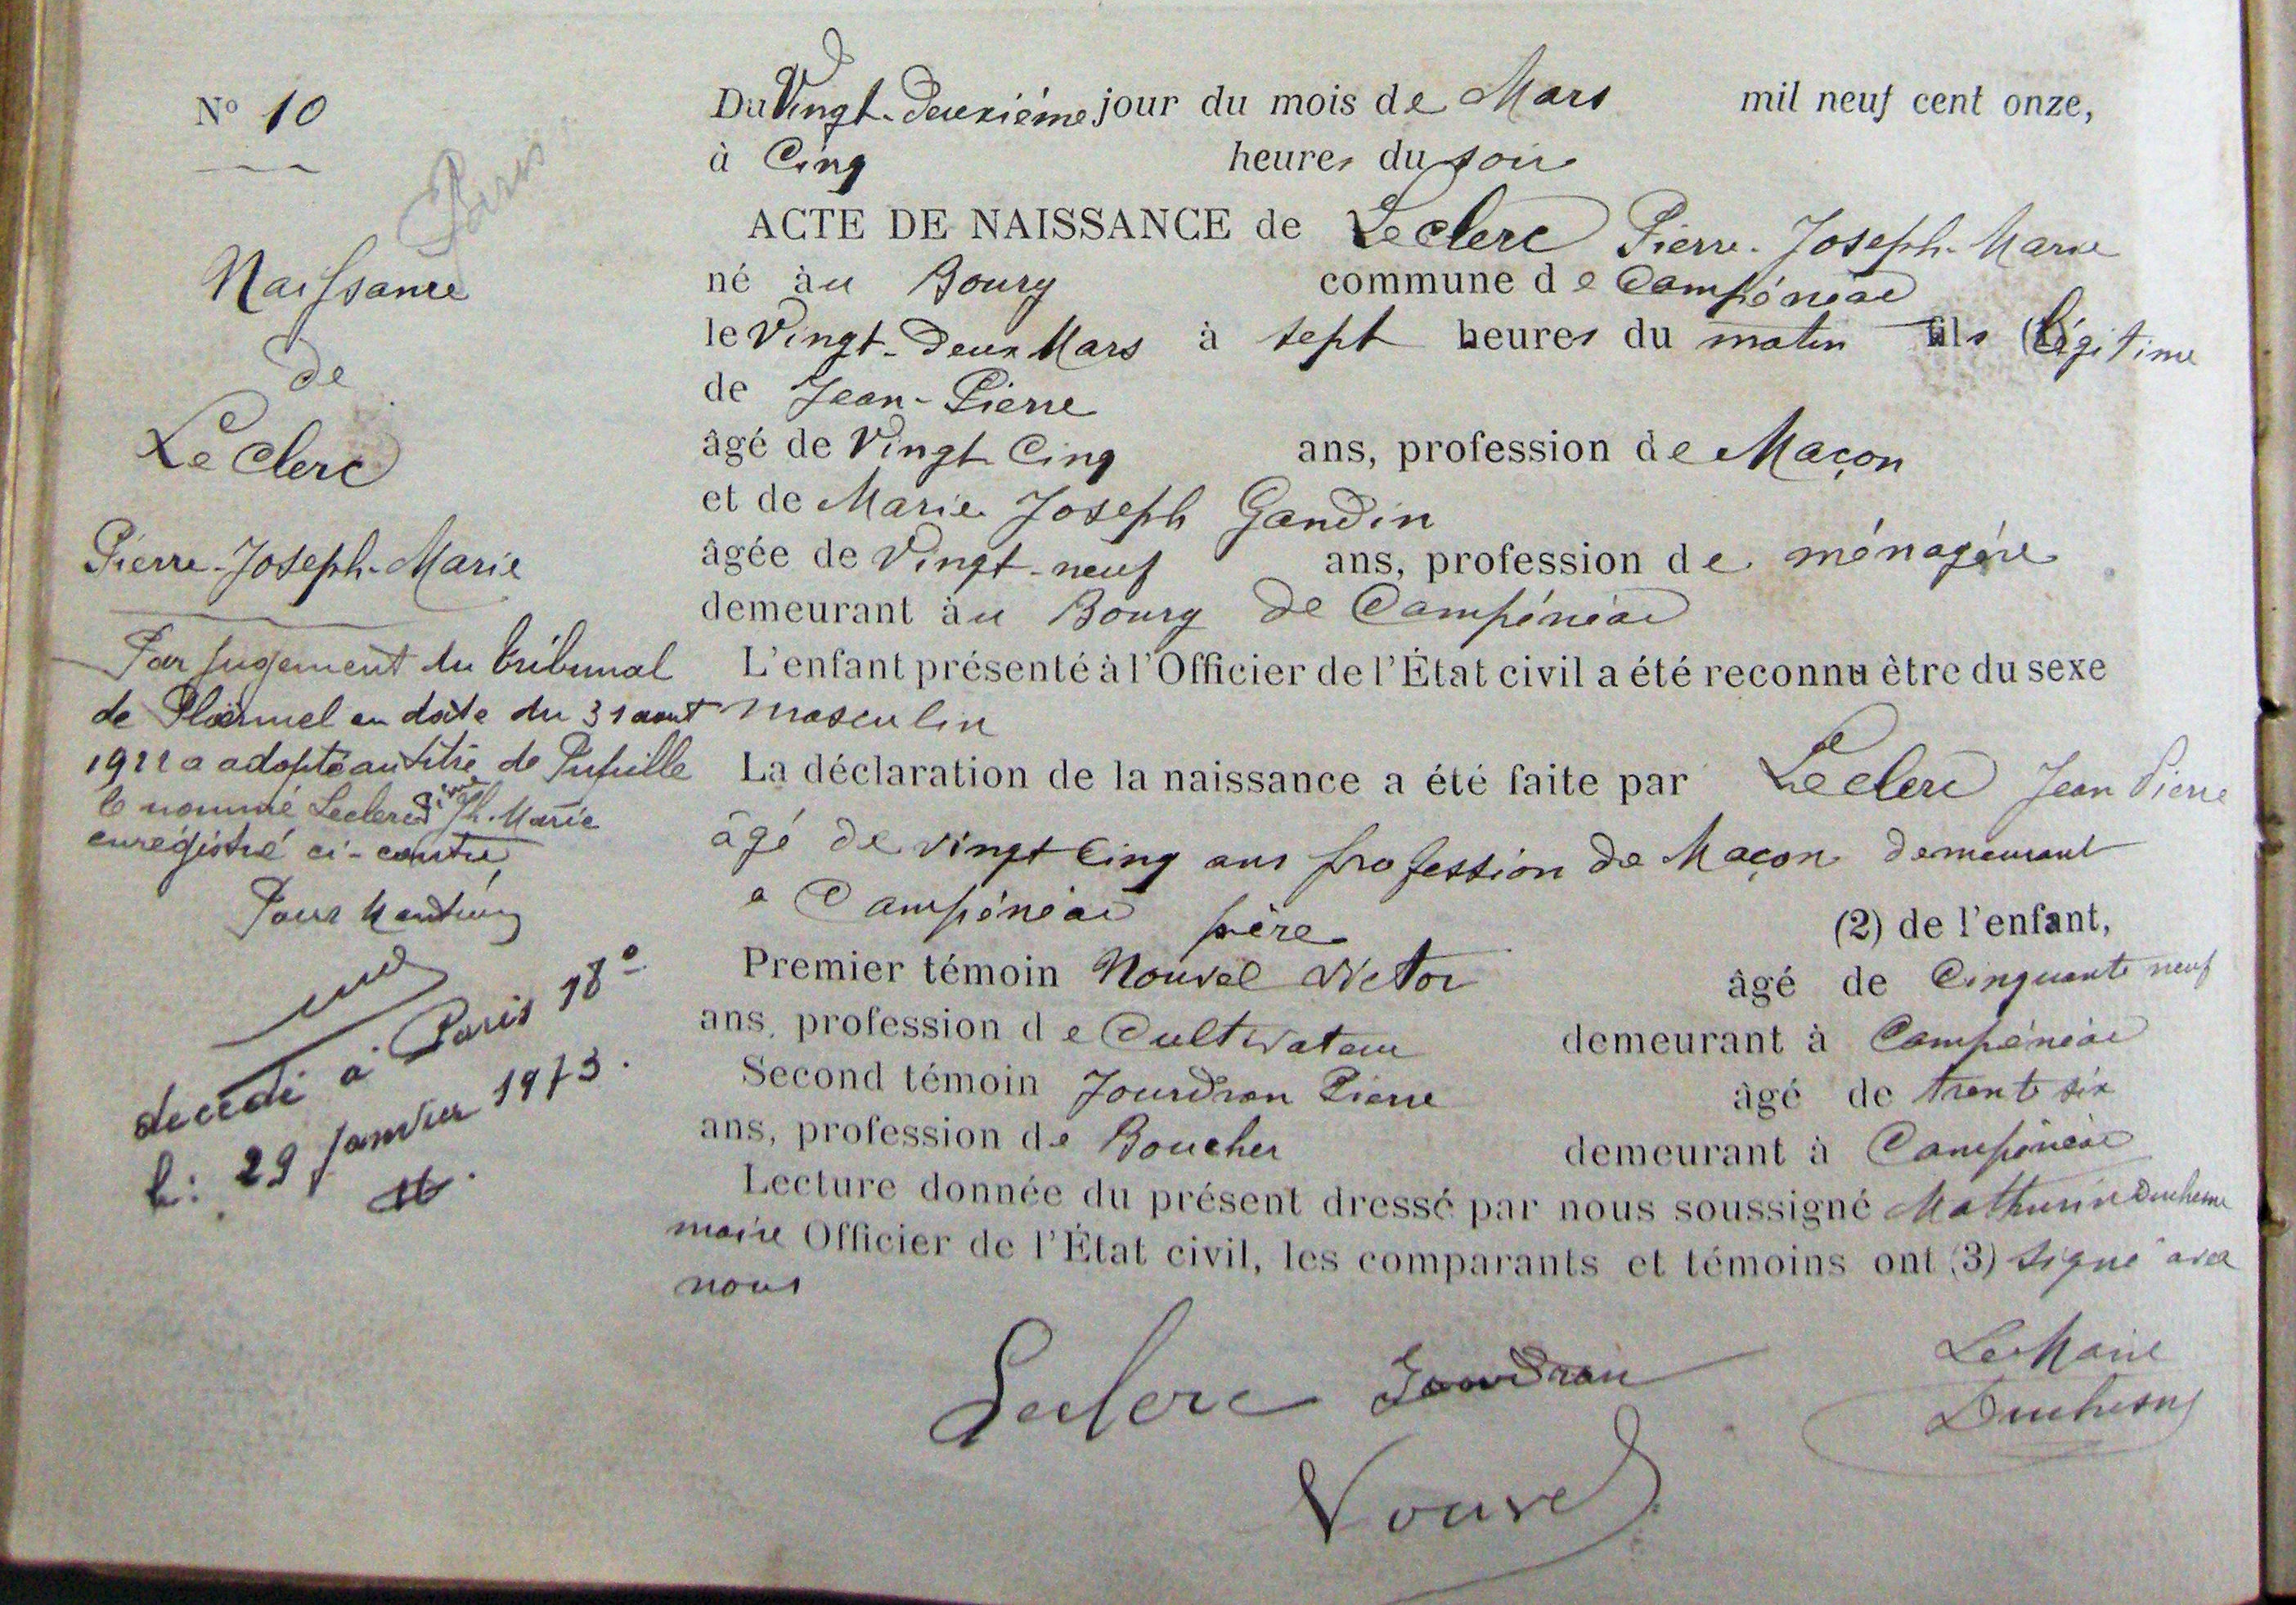 N° 10
Paris
Naissance
de
Leclerc
Pierre-Joseph-Marie
Par jugement du tribunal
de Ploërmel en date du 31 aout
1922 a adopté au titre de Pupille
le nommé Leclerc Pierre Jh. Marie
enrégistré ci-contre,
Pour Mention
décédé à Paris 18e
le: 29 janvier 1973.
Du Vingt-deuxième jour du mois de Mars mil neuf cent onze,
à Cinq heures du soir
ACTE DE NAISSANCE de Leclerc Pierre-Joseph-Marie
né à u Bourg commune de Campénéac
le Vingt-deux Mars à sept heures du matin fils (légitime
de Jean-Pierre
âgé de Vingt Cinq ans, profession de Maçon
et de Marie Joseph Gandin
âgée de Vingt-neuf ans, profession de ménagère
demeurant à u Bourg de Campénéac
L'enfant présenté à l'Officier de l'État civil a été reconnu être du sexe
masculin
La déclaration de la naissance a été faite par Leclerc Jean Pierre
âgé de vingt cinq ans profession de Maçon demeurant
a Campénéac père (2) de l'enfant,
Premier témoin Nouvel Victor âgé de Cinquante neuf
ans, profession de Cultivateur demeurant à Campénéac
Second témoin Jourdran Pierre âgé de trente six
ans, profession de Boucher demeurant à Campénéac
Lecture donnée du présent dressé par nous soussigné Mathurin Duchesne
maire Officier de l'État civil, les comparants et témoins ont (3) signé avec
nous
Leclerc Jourdran Le Maire
Duchesne
Nouvel